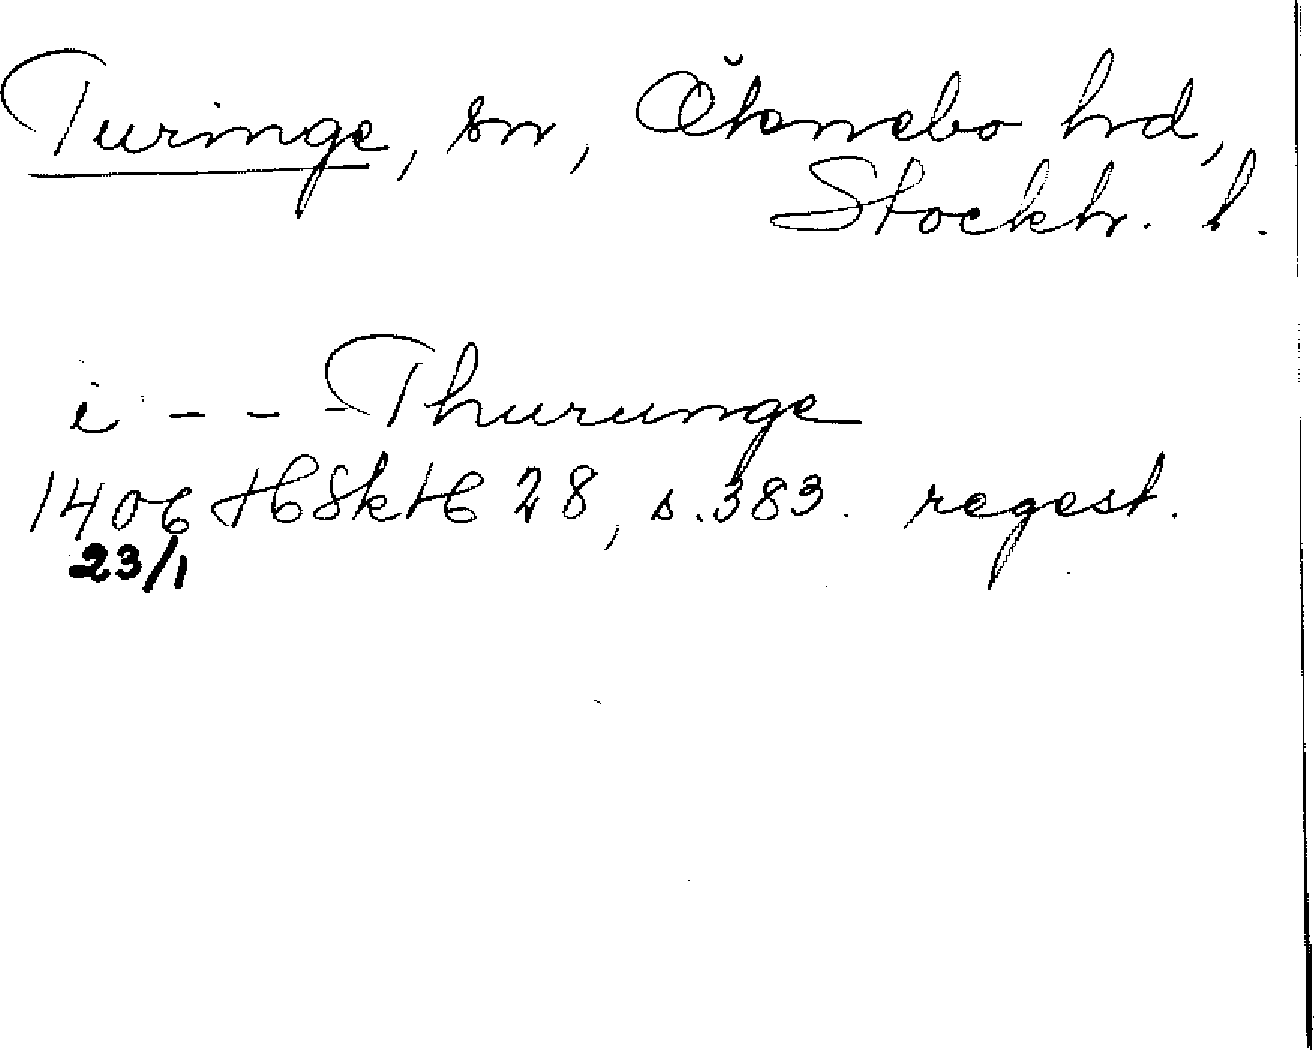 Turinge, sn, Öknebo hrd,
Stockh. l.
i - - - Thurunge
1406 HSkH 28, s. 383. regest.
23/1